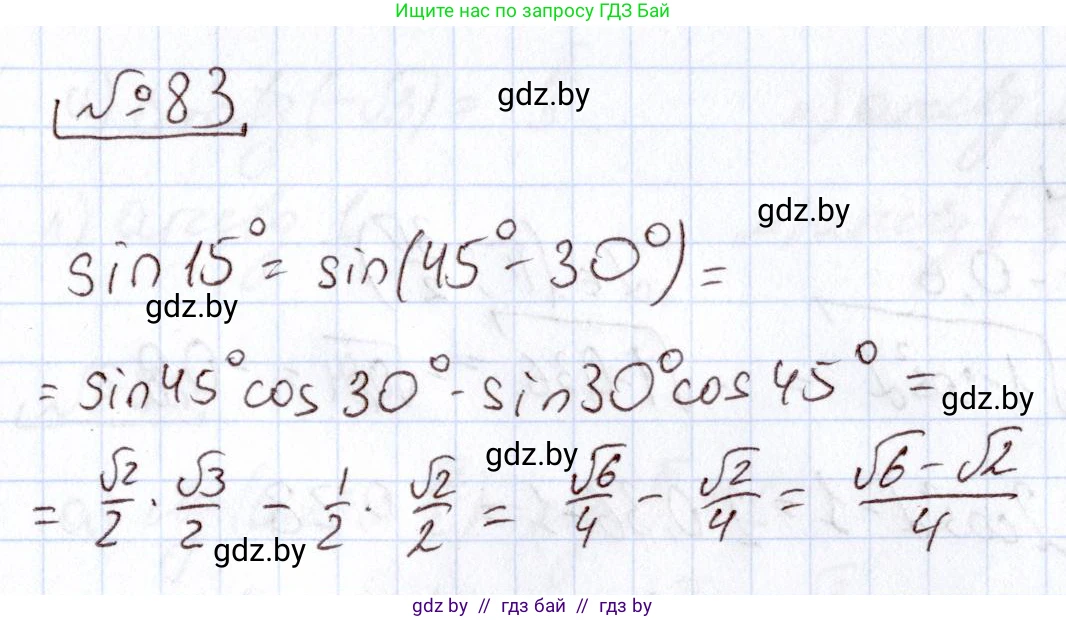 Ищите нас по запросу ГДЗ Бай
№83
gdz.by
gdz.by
sin 15° = sin(45° - 30°) =
gdz.by
= sin45°cos 30° - sin30°cos 45° =
gdz.by
gdz.by
= √2/2 · √3/2 - 1/2 · √2/2 = √6/4 - √2/4 = (√6 - √2)/4
gdz.by
gdz by // гдз бай // гдз by